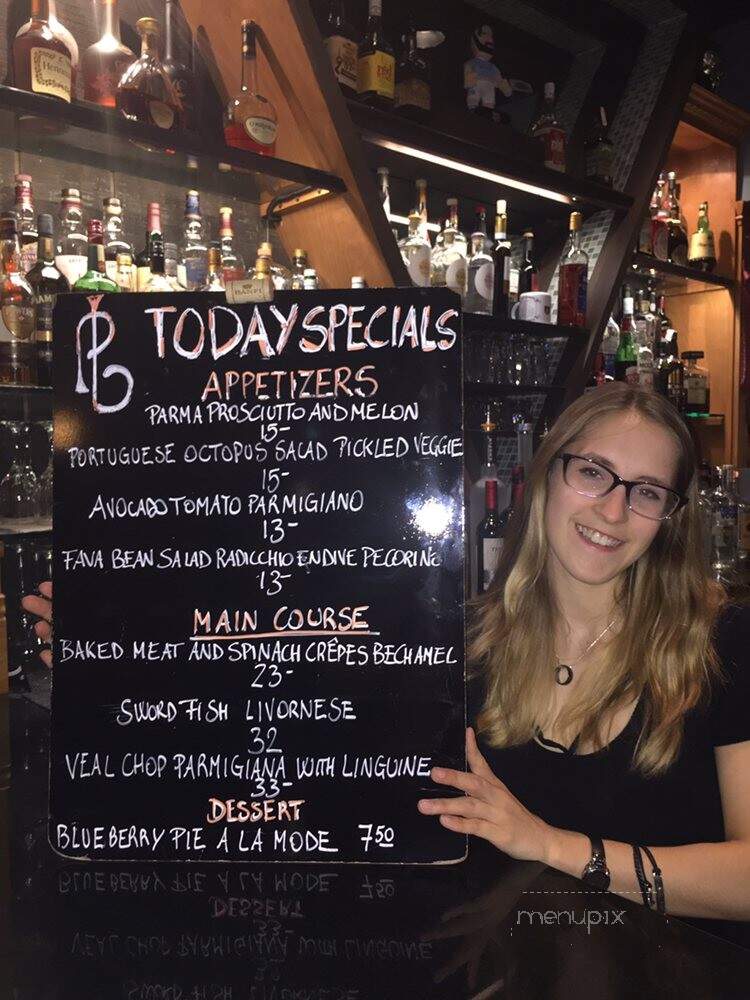 PL
TODAY SPECIALS
APPETIZERS
PARMA PROSCIUTTO AND MELON
15-
PORTUGUESE OCTOPUS SALAD PICKLED VEGGIE
15-
AVOCADO TOMATO PARMIGIANO
13-
FAVA BEAN SALAD RADICCHIO ENDIVE PECORINO
13-
MAIN COURSE
BAKED MEAT AND SPINACH CRÊPES BECHAMEL
23-
SWORD FISH LIVORNESE
32
VEAL CHOP PARMIGIANA WITH LINGUINE
33-
DESSERT
BLUEBERRY PIE A LA MODE 750
menupix